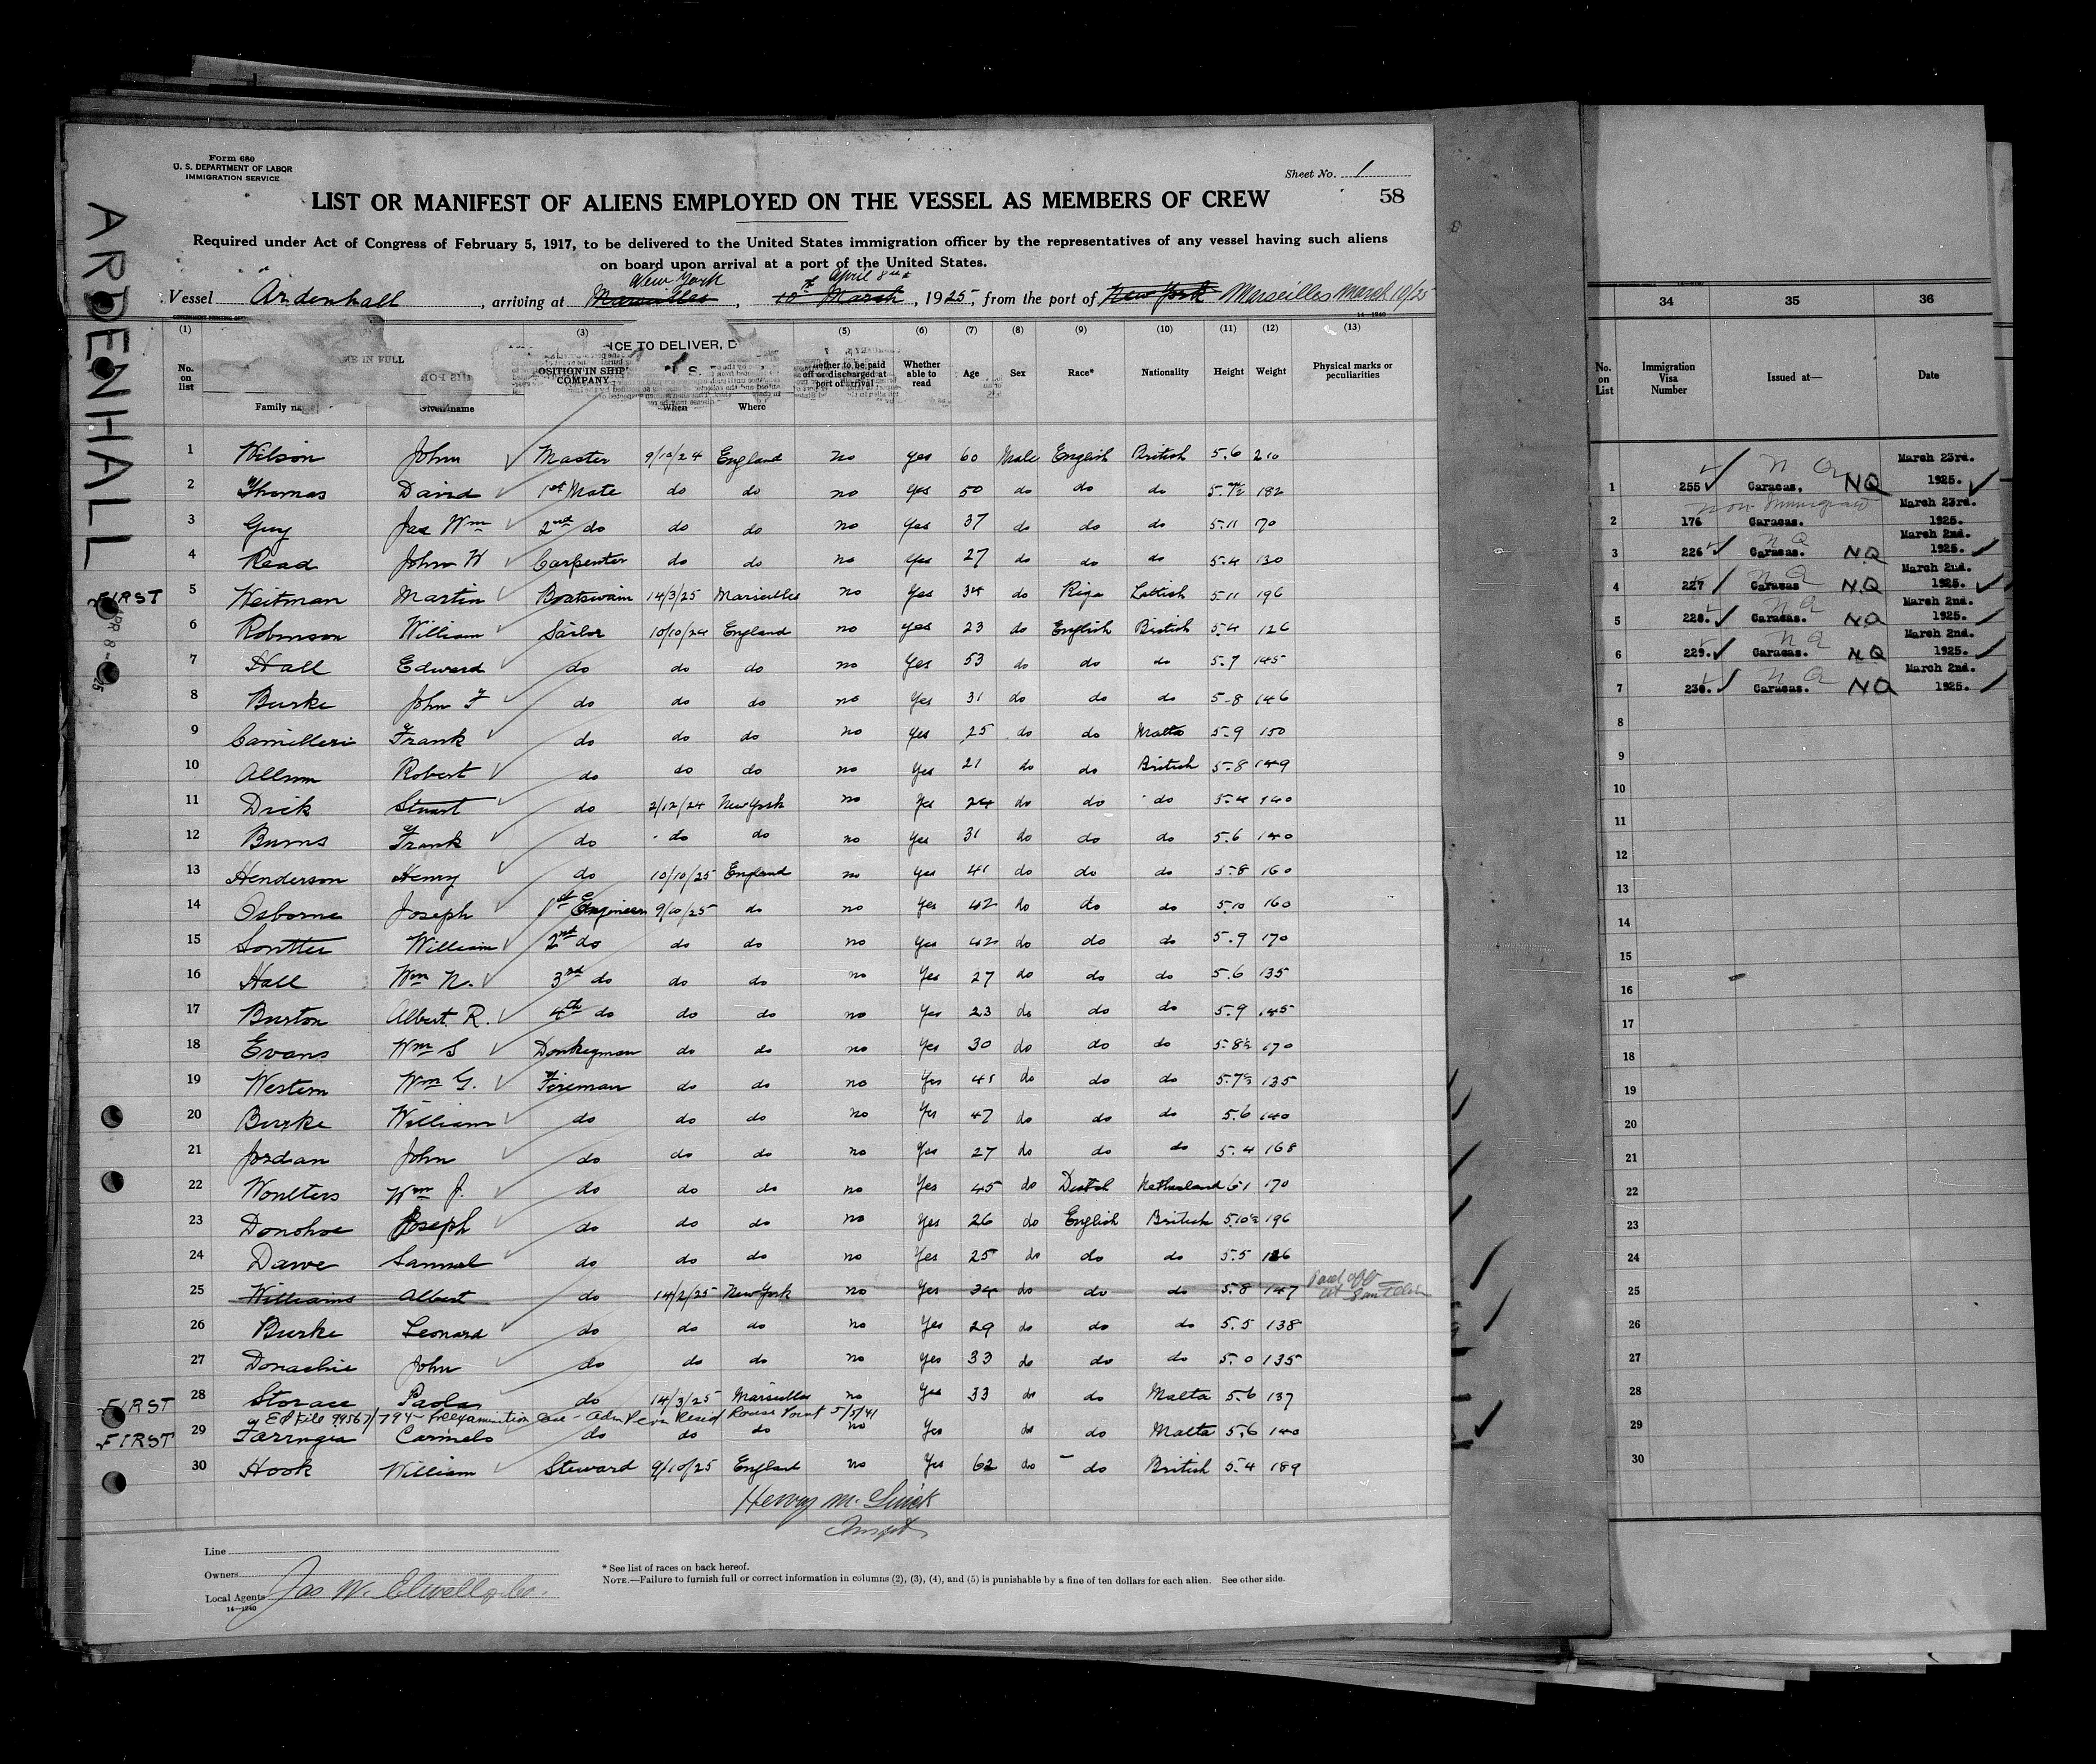 Form 680
U. S. DEPARTMENT OF LABOR
IMMIGRATION SERVICE
Sheet No. 1
58
LIST OR MANIFEST OF ALIENS EMPLOYED ON THE VESSEL AS MEMBERS OF CREW
Required under Act of Congress of February 5, 1917, to be delivered to the United States immigration officer by the representatives of any vessel having such aliens
on board upon arrival at a port of the United States.
New York April 8th
Vessel Ardenhall, arriving at Marseilles, 10th March, 1925, from the port of New York Marseilles March 10/25
ARDENHALL
(1) (3) (5) (6) (7) (8) (9) (10) (11) (12) (13)
No. on list
ME IN FULL
Family name
Given name
NCE TO DELIVER, D
OSITION IN SHIP'
COMPANY
When
Where
hether to be paid
off or discharged at
port of arrival
Whether able to read
Age
Sex
Race*
Nationality
Height
Weight
Physical marks or peculiarities
1 Wilson John Master 9/10/24 England no yes 60 Male English British 5.6 210
2 Thomas David 1st Mate do do no yes 50 do do do 5.7½ 182
3 Guy Jas Wm 2nd do do do no yes 37 do do do 5.11 70
4 Read John W Carpenter do do no yes 27 do do do 5.4 130
FIRST 5 Weitman Martin Boatswain 14/3/25 Marseilles no yes 34 do Riga Lettish 5.11 196
6 Robinson William Sailor 10/10/24 England no yes 23 do English British 5.4 126
7 Hall Edward do do do no yes 53 do do do 5.7 145
8 Burke John F do do do no yes 31 do do do 5-8 146
9 Camilleri Frank do do do no yes 25 do do Malta 5.9 150
10 Allum Robert do do do no yes 21 do do British 5.8 149
11 Dick Stuart do 2/12/24 New York no yes 24 do do do 5.4 140
12 Burns Frank do do do no yes 31 do do do 5.6 140
13 Henderson Henry do 10/10/25 England no yes 41 do do do 5.8 160
14 Osborne Joseph 1st Engineer 9/10/25 do no yes 42 do do do 5.10 160
15 Soutter William 2nd do do do no yes 42 do do do 5.9 170
16 Hall Wm N. 3rd do do do no yes 27 do do do 5.6 135
17 Burton Albert R. 4th do do do no yes 23 do do do 5.9 145
18 Evans Wm S Donkeyman do do no yes 30 do do do 5-8½ 170
19 Western Wm G. Fireman do do no yes 41 do do do 5.7½ 135
20 Burke William do do do no yes 47 do do do 5.6 140
21 Jordan John do do do no yes 27 do do do 5.4 168
22 Woulters Wm J. do do do no yes 45 do Dutch Netherland 6.1 170
23 Donohoe Joseph do do do no yes 26 do English British 5.10½ 196
24 Dawe Samuel do do do no yes 25 do do do 5.5 136
25 Williams Albert do 14/2/25 New York no yes 34 do do do 5.8 147 Paid off at
26 Burke Leonard do do do no yes 29 do do do 5.5 138
27 Donachie John do do do no yes 33 do do do 5.0 135
FIRST 28 Storace Paolo do 14/3/25 Marseilles no yes 33 do do Malta 5.6 137
Ed File 99567/794 - Preexamination Case - Adm Perm Resid Rouses Point 5/5/41
FIRST 29 Farrugia Carmelo do do do no yes do do Malta 5.6 140
30 Hook William Steward 9/10/25 England no yes 62 do do British 5.4 189
Henry M.
Inspt
Line
Owners
Local Agents Jas W. Elwell & Co.
14—1240
* See list of races on back hereof.
NOTE.—Failure to furnish full or correct information in columns (2), (3), (4), and (5) is punishable by a fine of ten dollars for each alien. See other side.
34 35 36
No. on List
Immigration Visa Number
Issued at—
Date
1 255 Caracas, NQ March 23rd. 1925.
non immigrant
2 176 Caracas. March 23rd. 1925.
3 226 Caracas. N.Q March 2nd. 1925.
4 227 Caracas N.Q March 2nd. 1925.
5 228. Caracas. NQ March 2nd. 1925.
6 229. Caracas. NQ March 2nd. 1925.
7 230. Caracas. NQ March 2nd. 1925.
8
9
10
11
12
13
14
15
16
17
18
19
20
21
22
23
24
25
26
27
28
29
30